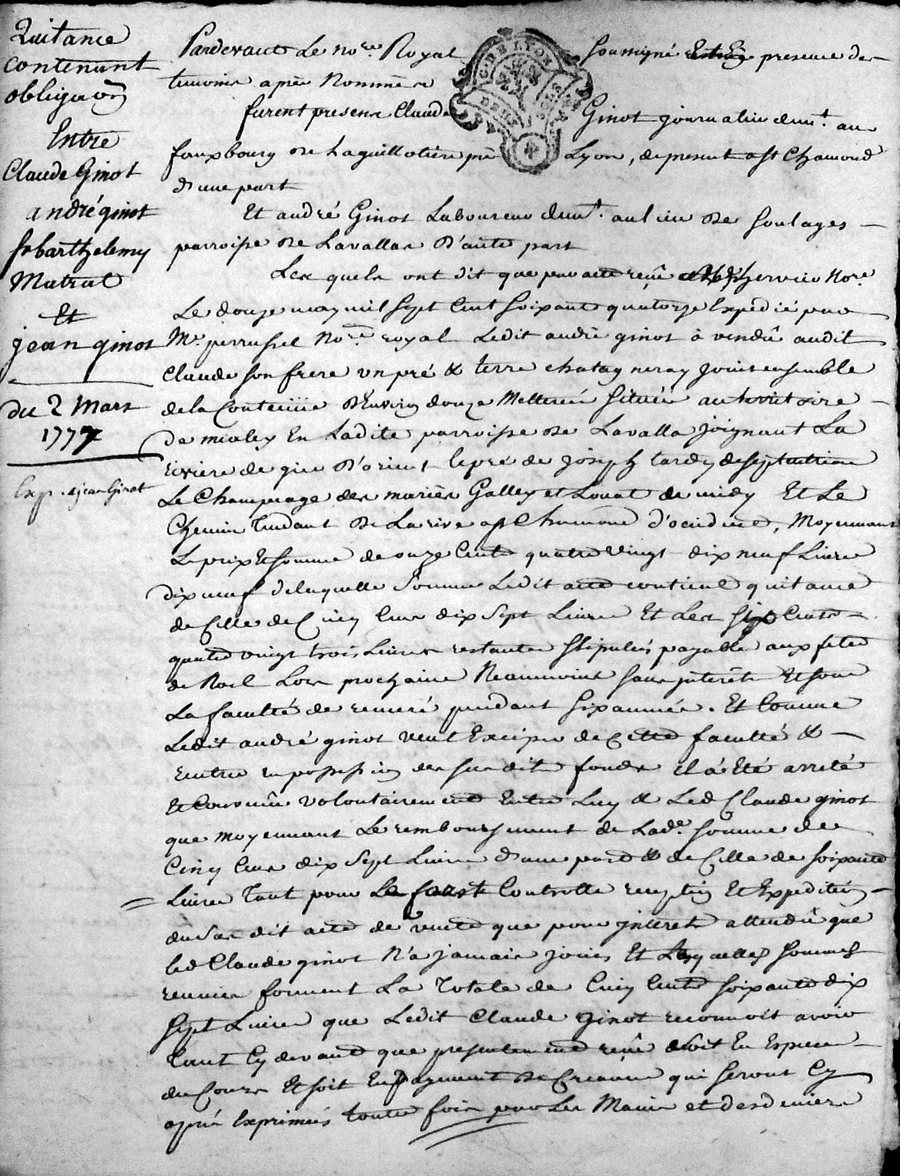 Quitance
contenant
obligaõn
Entre
Claude Ginot
andré ginot
barthelemy
Matrat
Et
jean ginot
du 2 Mars
1777
Exp. a jean Ginot
Pardevant Le no.re Royal soussigné Et En presence des
temoins après Nommés
furent presens Claude Ginot journalier dem.t au
fauxbourg de Laguillotière près Lyon, de present a St Chamond
d'une part
Et andré Ginot Laboureur dem.t au lieu de soulages
parroisse de Lavallas d'autre part
Les quels ont dit que par acte reçu Me servier No.re
Le douze may mil sept Cent soixante quatorze Expedié par
M.e perrussel No.re royal Ledit andré ginot à vendu audit
Claude son frere un pré & terre chatagneray joints ensemble
de la Contenue d'Environ douze Metterées située au territoire
de mioley En Ladite parroisse de Lavalla joignant La
riviere de gier d'orient le pré de joseph tardy de septentrion
Le Champeage des mariés Galley et Louat de midy Et Le
Chemin tendant de Larive a st Chamond d'occident, Moyennant
Le prix Et somme de onze Cents quatre vingt dix neuf Livres
dix neuf de laquelle somme Ledit acte contient quitance
de Celle de Cinq Cens dix sept Livres Et Les six Cents
quatre vingt trois Livres restantes stipulés payable aux fetes
de Noel Lors prochaine Neanmoint sans interêts Et sous
La faculté de remeré pendant six années. Et Comme
Ledit andré ginot veut Exciper de Cette faculté &
rentrer en possession des sus dit fonds il a Eté arreté
Et Convenu volontairement Entre Luy & Led Claude ginot
que moyennant Le remboursement de Lad.e somme de
Cinq Cens dix sept Livres d'une part & de Celle de soixante
Livres tant pour Le Controlle reception Et Expedition
du sus dit acte de vente que pour interets attendu que
led Claude ginot N'a jamais jouis Et Lesquelles sommes
reunies forment La Totale de Cinq Cents soixante dix
sept Livres que Ledit Claude Ginot reconnoit avoir
tant Cy devant que presentement reçu soit En Especes
du Cours Et soit En payment de Creances qui seront Cy
après Exprimées toutes fois par Les Mains et des deniers